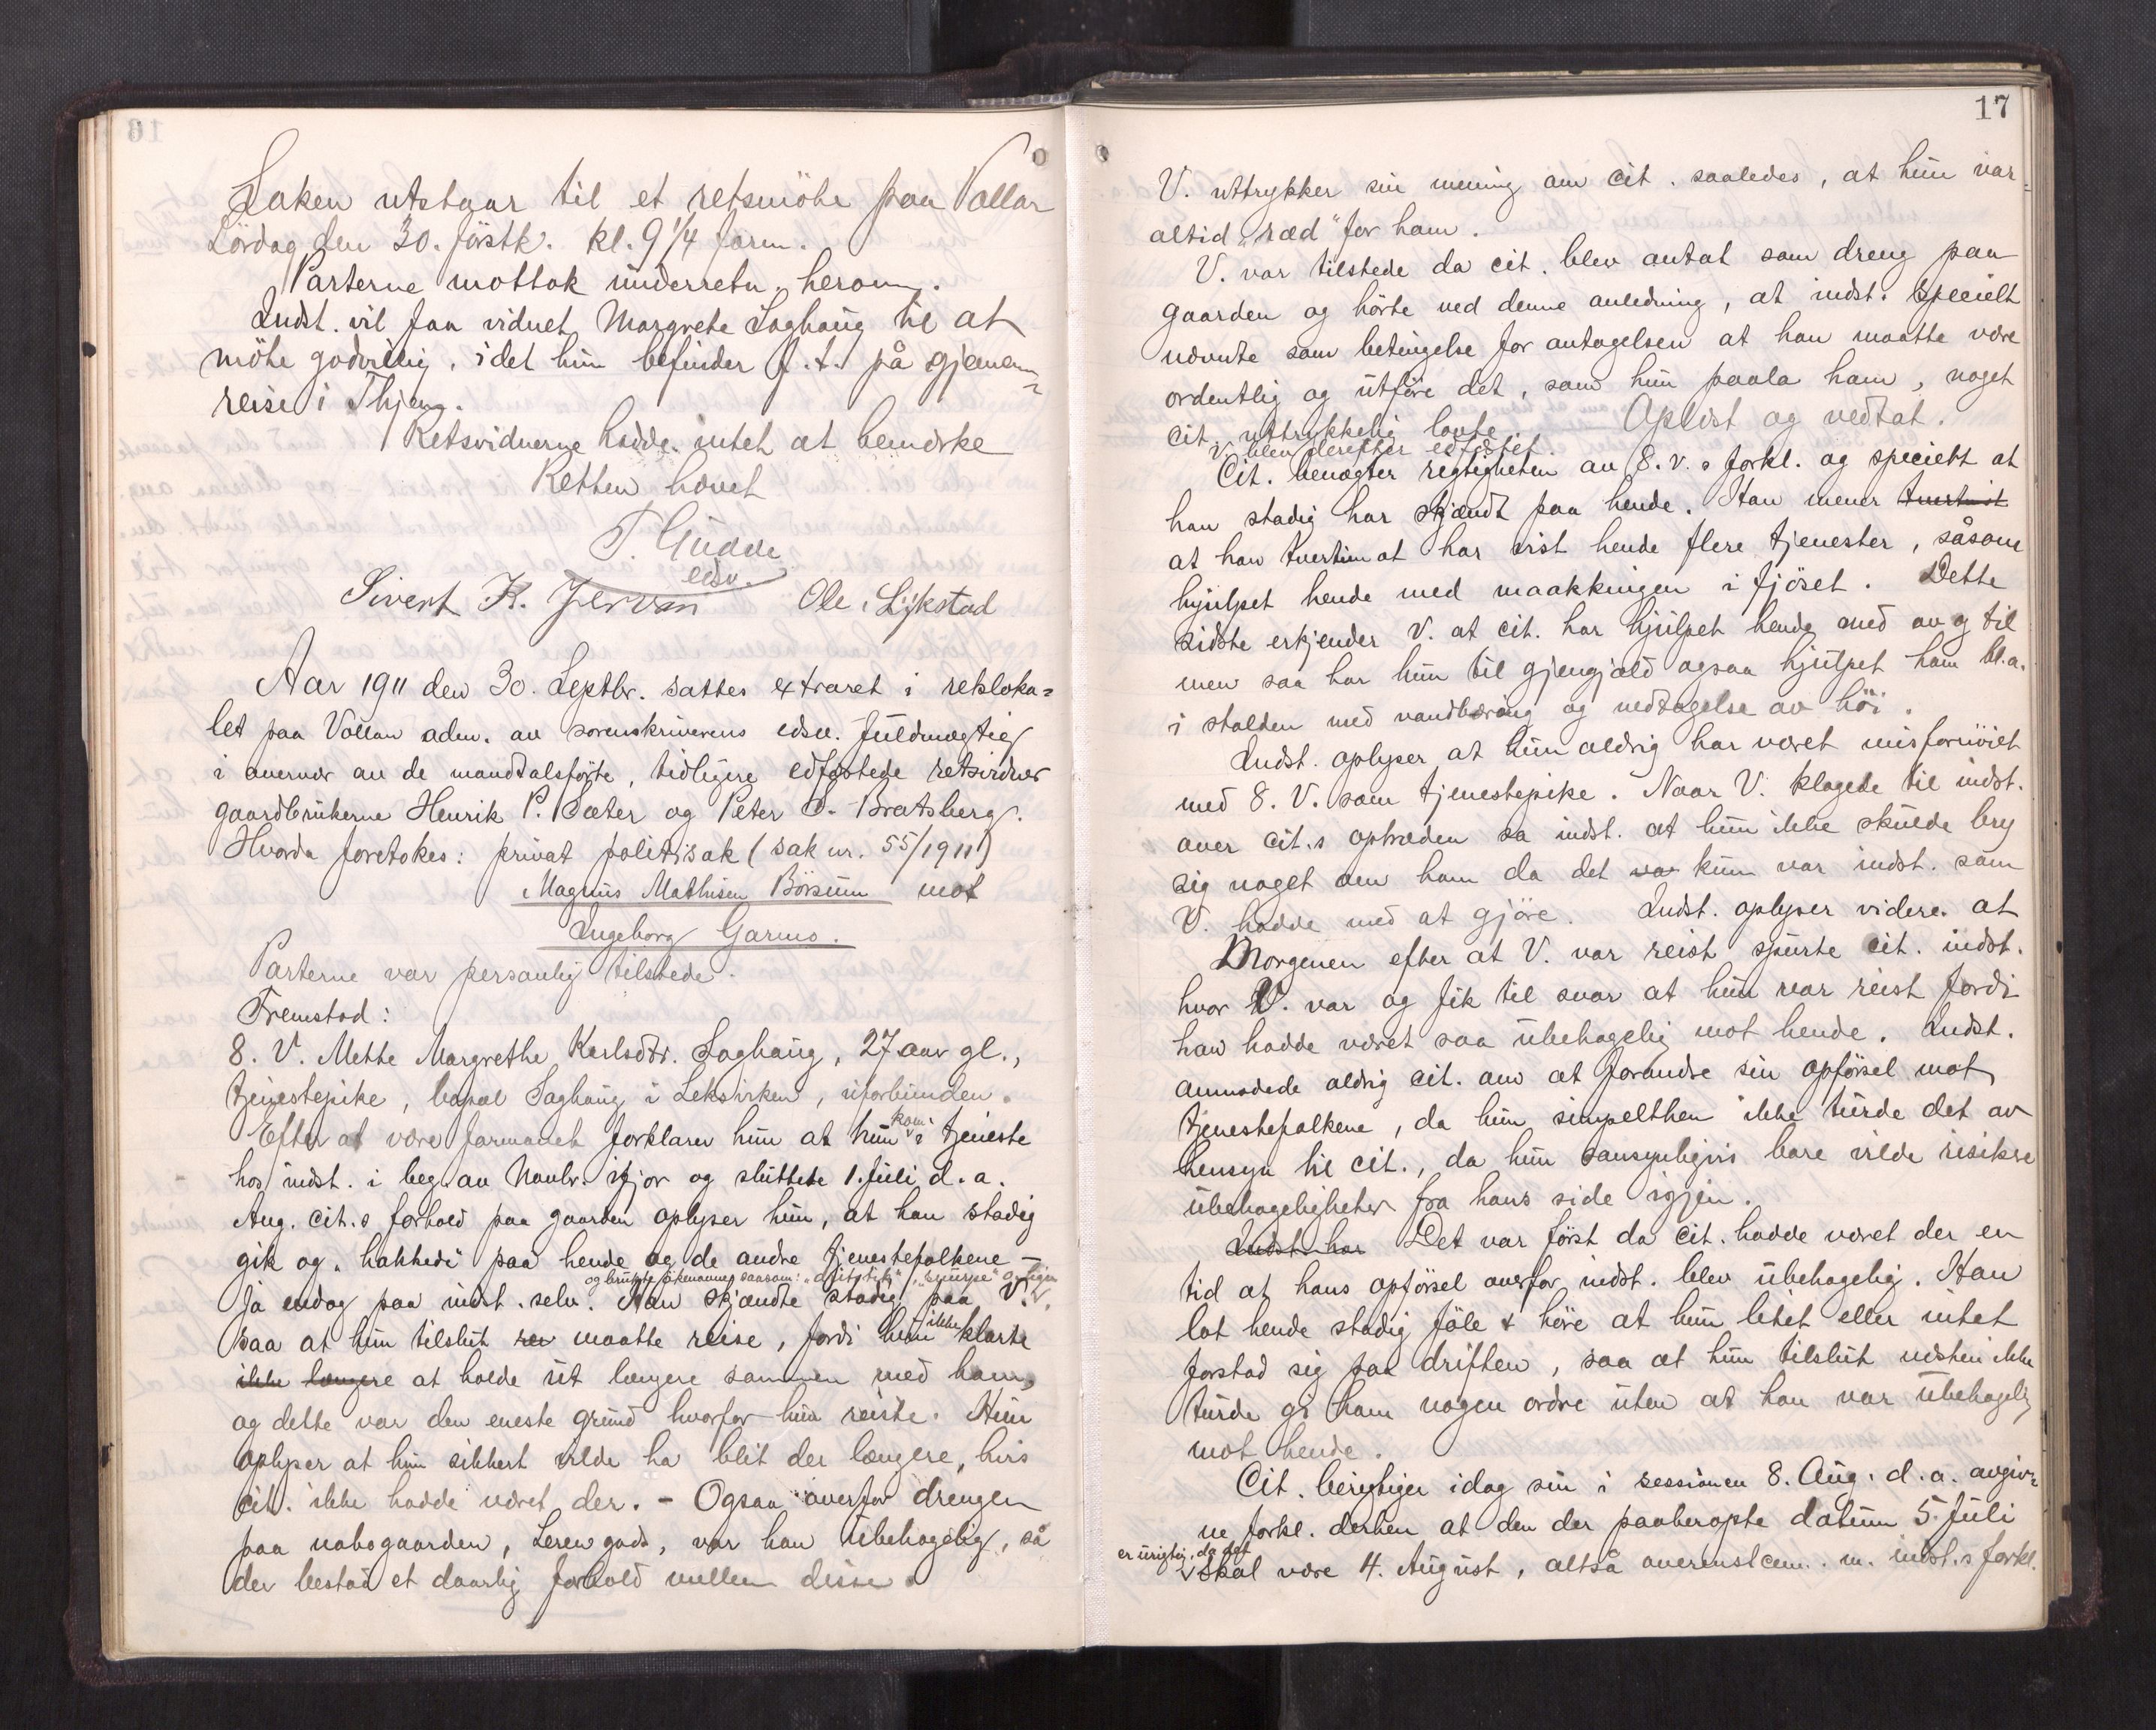 Saken utstaar til et retsmöte paa Vollan
Lördag den 30. förstk. kl. 9 1/4 form.
Parterne mottok underretn. herom.
Indst. vil faa vidnet Margrete Saghaug til at
möte godvillig, idet hun befinder f. t. på gjennem=
reise i Thjem.
Retsvidnerne hadde intet at bemærke
Retten hævet
T. Gudde
edsv.
Sivert K. Jervan Ole Lykstad
Aar 1911 den 30. Septbr. sattes extraret i retsloka=
let paa Vollan adm. av sorenskriverens edsv. fuldmægtig
i overvær av de mandtalsførte, tidligere edfæstede retsvidner
gaardbrukerne Henrik P. Sæter og Peter O. Bratsberg.
Hvorda foretokes: privat politisak (sak nr. 55/1911)
Magnus Mathisen Börsum mot
Ingeborg Garmo.
Parterne var personlig tilstede.
Fremstod:
8. V. Mette Margrethe Karlsdtr. Saghaug, 27 aar gl.,
tjenestepike, bopæl Saghaug i Leksviken, uforbunden.
Efter at være formanet forklarer hun at hun kom i tjeneste
hos indst. i beg. av Novbr. ifjor og sluttete 1. Juli d. a.
Ang. cit.s forhold paa gaarden oplyser hun, at han stadig
gik og "hakkede" paa hende og de andre tjenestefolkene –
og brukte ökenavne saasom:
ja endog paa indst. selv. Han skjændte stadig paa V.
saa at hun tilslut maatte reise, fordi hun ikke klarte
ikke længere at holde ut længere sammen med ham,
og dette var den eneste grund hvorfor hun reiste. Hun
oplyser at hun sikkert vilde ha blit der længere, hvis
cit. ikke hadde været der. – Ogsaa overfor drengen
paa nabogaarden, Leren gods, var han ubehagelig, så
der bestod et daarlig forhold mellem disse.
17
V. uttrykker sin mening om cit. saaledes, at hun var
altid "ræd" for ham.
V. var tilstede da cit. blev antat som dreng paa
gaarden og hörte ved denne anledning, at indst. specielt
nævnte som betingelse for antagelsen at han maatte være
ordentlig og utföre det, som hun paala ham, noget
cit. uttrykkelig lovte. Oplæst og vedtat.
V. blev derefter edfæstet.
Cit. benægter regtigheten av 8. v.s forkl. og specielt at
han stadig har skjændt paa hende. Han mener tvertimot
at han tvertimot har vist hende flere tjenester, såsom
hjulpet hende med maakkingen i fjöset. Dette
sidste erkjender V. at cit. har hjulpet hende med av og til
men saa har hun til gjengjæld ogsaa hjulpet ham bl.a.
i stalden med vandbæring og nedtagelse av höi.
Indst. oplyser at hun aldrig har været misfornöiet
med 8. V. som tjenestepike. Naar V. klagede til indst.
over cit.s optræden sa indst. at hun ikke skulde bry
sig noget om ham da det va kun var indst. som
V. hadde med at gjöre. Indst. oplyser videre at
Morgenen efter at V. var reist spurte cit. indst.
hvor V. var og fik til svar at hun var reist fordi
han hadde været saa ubehagelig mot hende. Indst.
anmodede aldrig cit. om at forandre sin opförsel mot
tjenestefolkene, da hun simpelthen ikke turde det av
hensyn til cit., da hun sansynligvis bare vilde risikere
ubehageligheter fra hans side igjen.
Indst. har Det var först da cit. hadde været der en
tid at hans opförsel overfor indst. blev ubehagelig. Han
lot hende stadig föle & höre at hun litet eller intet
forstod sig paa driften, saa at hun tilslut næsten ikke
turde gi ham nogen ordre uten at han var ubehagelig
mot hende.
Cit. berigtiger idag sin i sessionen 8. Aug. d. a. avgiv=
ne forkl. derhen at den der paaberopte datum 5. Juli
er urigtig, da det
skal være 4. August, altså overenstem. m. indst.s forkl.